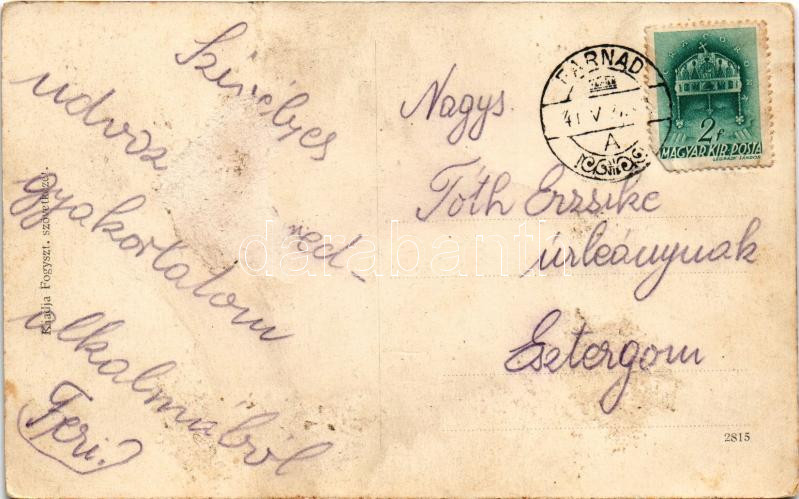 Szívélyes
üdvöz
red-
gyakorlatom
alkalmából
Feri.
Kiadja Fogyszt. szövetkezet.
Nagys.
Tóth Erzsike
úrleánynak
Esztergom
BARNAD
41 V
A
2f
MAGYAR KIR. POSTA
2815
darabanth